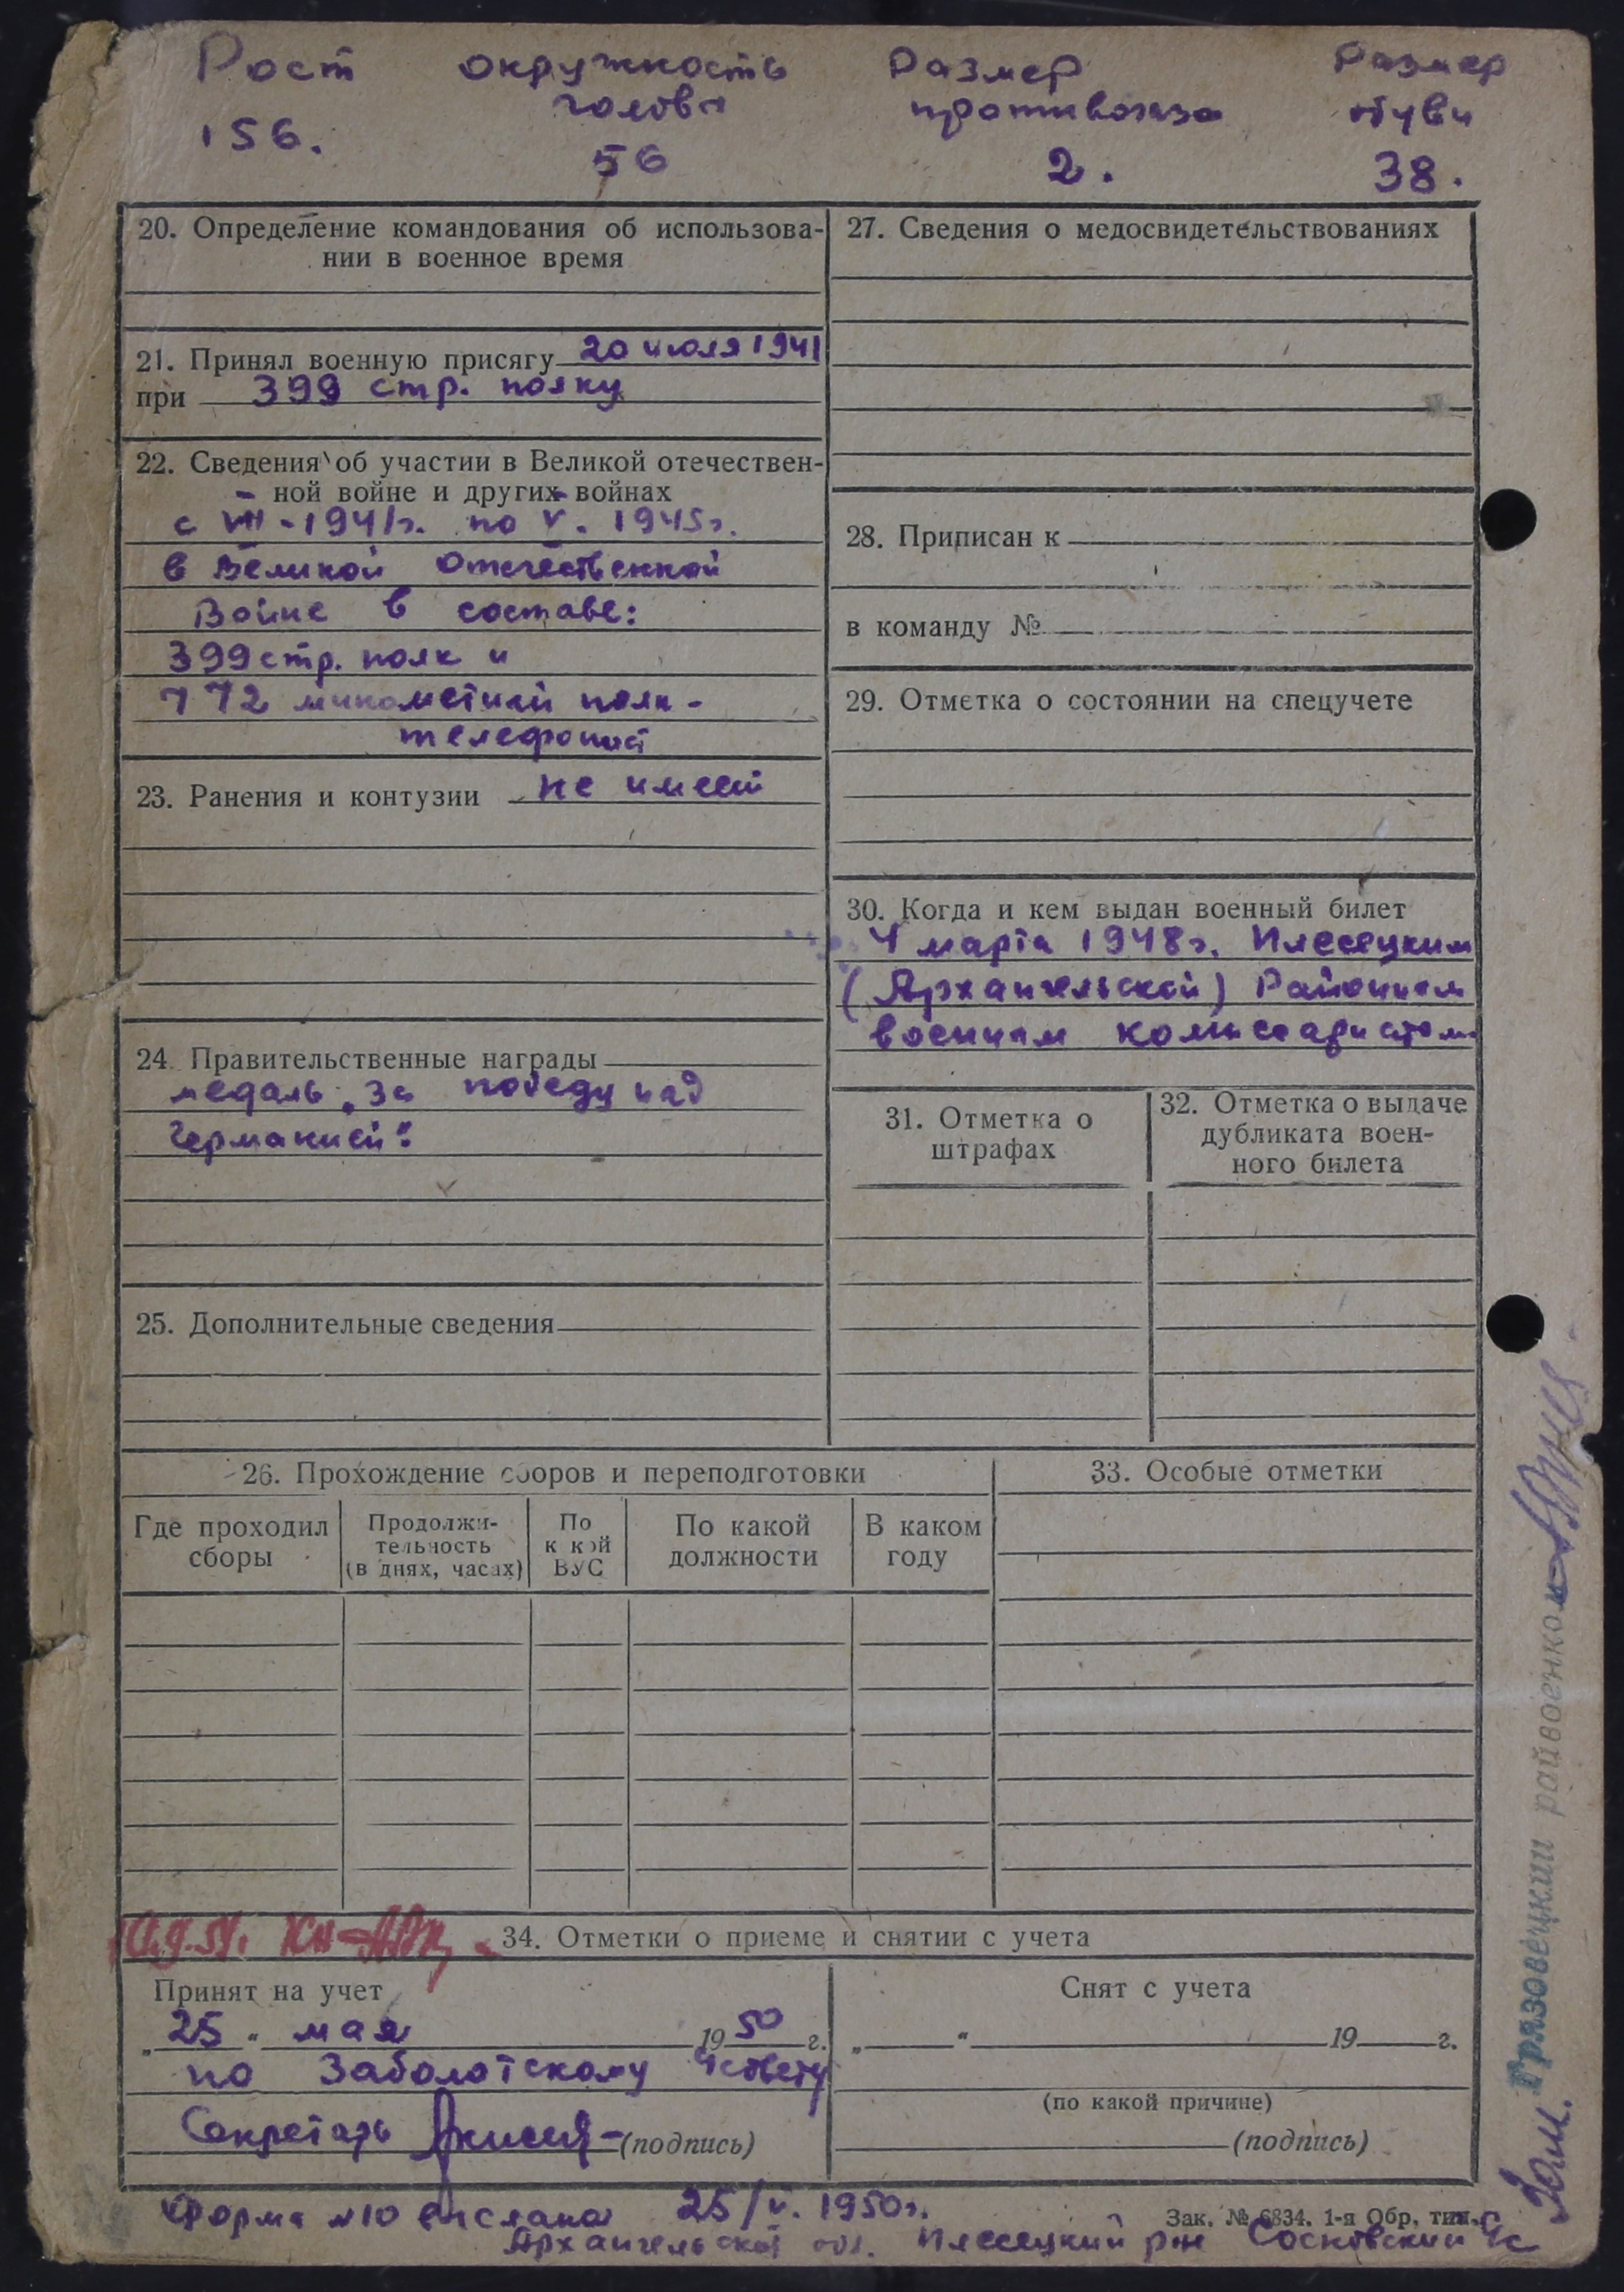 Рост окружность Размер Размер
головы противогаза обуви
156. 56 2. 38.
20. Определение командования об использова-
нии в военное время
21. Принял военную присягу 20 июля 1941
при 399 стр. полку
22. Сведения об участии в Великой отечествен-
ной войне и других войнах
с VII-1941г. по V. 1945г.
в Великой Отечественной
Войне в составе:
399 стр. полк и
772 минометный полк -
телефонист
23. Ранения и контузии не имеет
24. Правительственные награды
медаль „За победу над
Германией".
25. Дополнительные сведения
27. Сведения о медосвидетельствованиях
28. Приписан к
в команду №
29. Отметка о состоянии на спецучете
30. Когда и кем выдан военный билет
4 марта 1948г. Плесецким
(Архангельской) Районным
военным комиссариатом
31. Отметка о
штрафах
32. Отметка о выдаче
дубликата воен-
ного билета
26. Прохождение сборов и переподготовки
Где проходил
сборы
Продолжи-
тельность
(в днях, часах)
По
к кой
ВУС
По какой
должности
В каком
году
33. Особые отметки
34. Отметки о приеме и снятии с учета
Принят на учет
„25" мая 1950 г.
по Заболотскому
Секретарь (подпись)
Снят с учета
„ " 19 г.
(по какой причине)
(подпись)
Форма №10 выслана 25/V. 1950г.
Зак. № 6834. 1-я Обр. тип.
Архангельской обл. Плесецкий р-н Сосновский с/с
Зам. Грязовецкий райвоенком